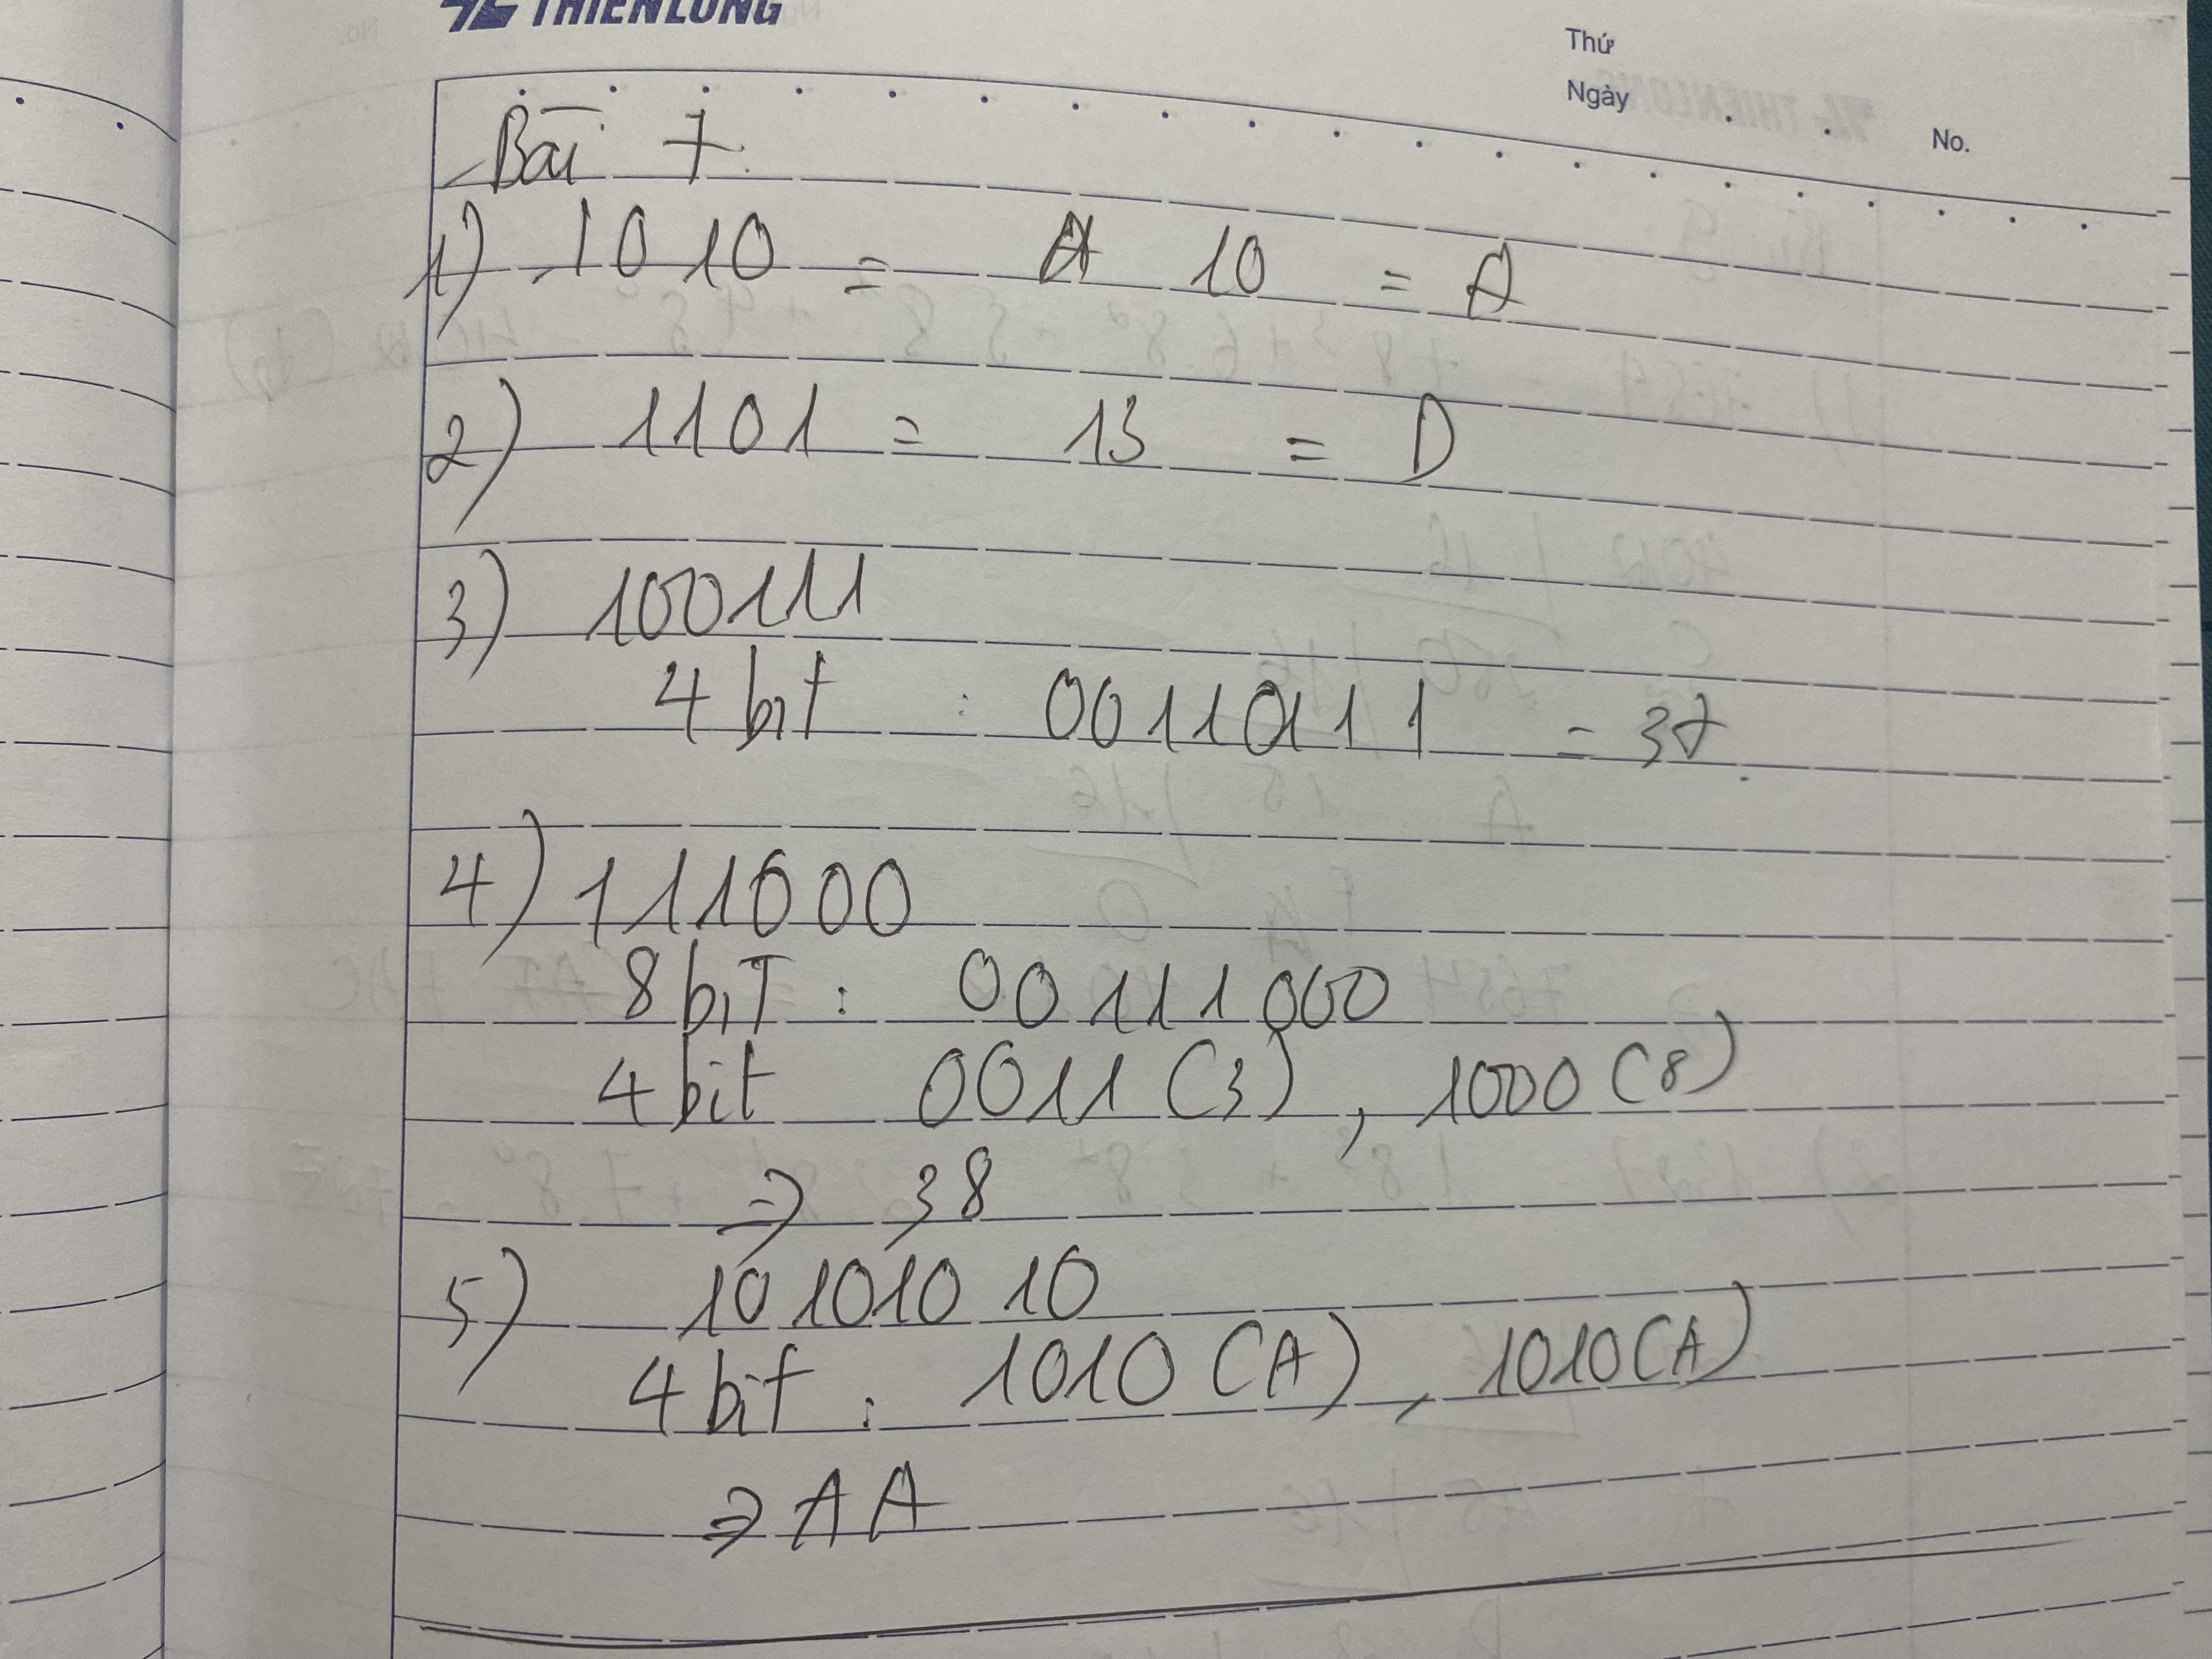 THIENLONG
Thứ
Ngày
No.
Bài 7:
1) 1010 = A 10 = A
2) 1101 = 13 = D
3) 10011
4 bit : 00110111 = 37
4) 111000
8 bit : 00111000
4 bit 0011 (3), 1000 (8)
=> 38
5) 10101010
4 bit : 1010 (A), 1010 (A)
=> AA